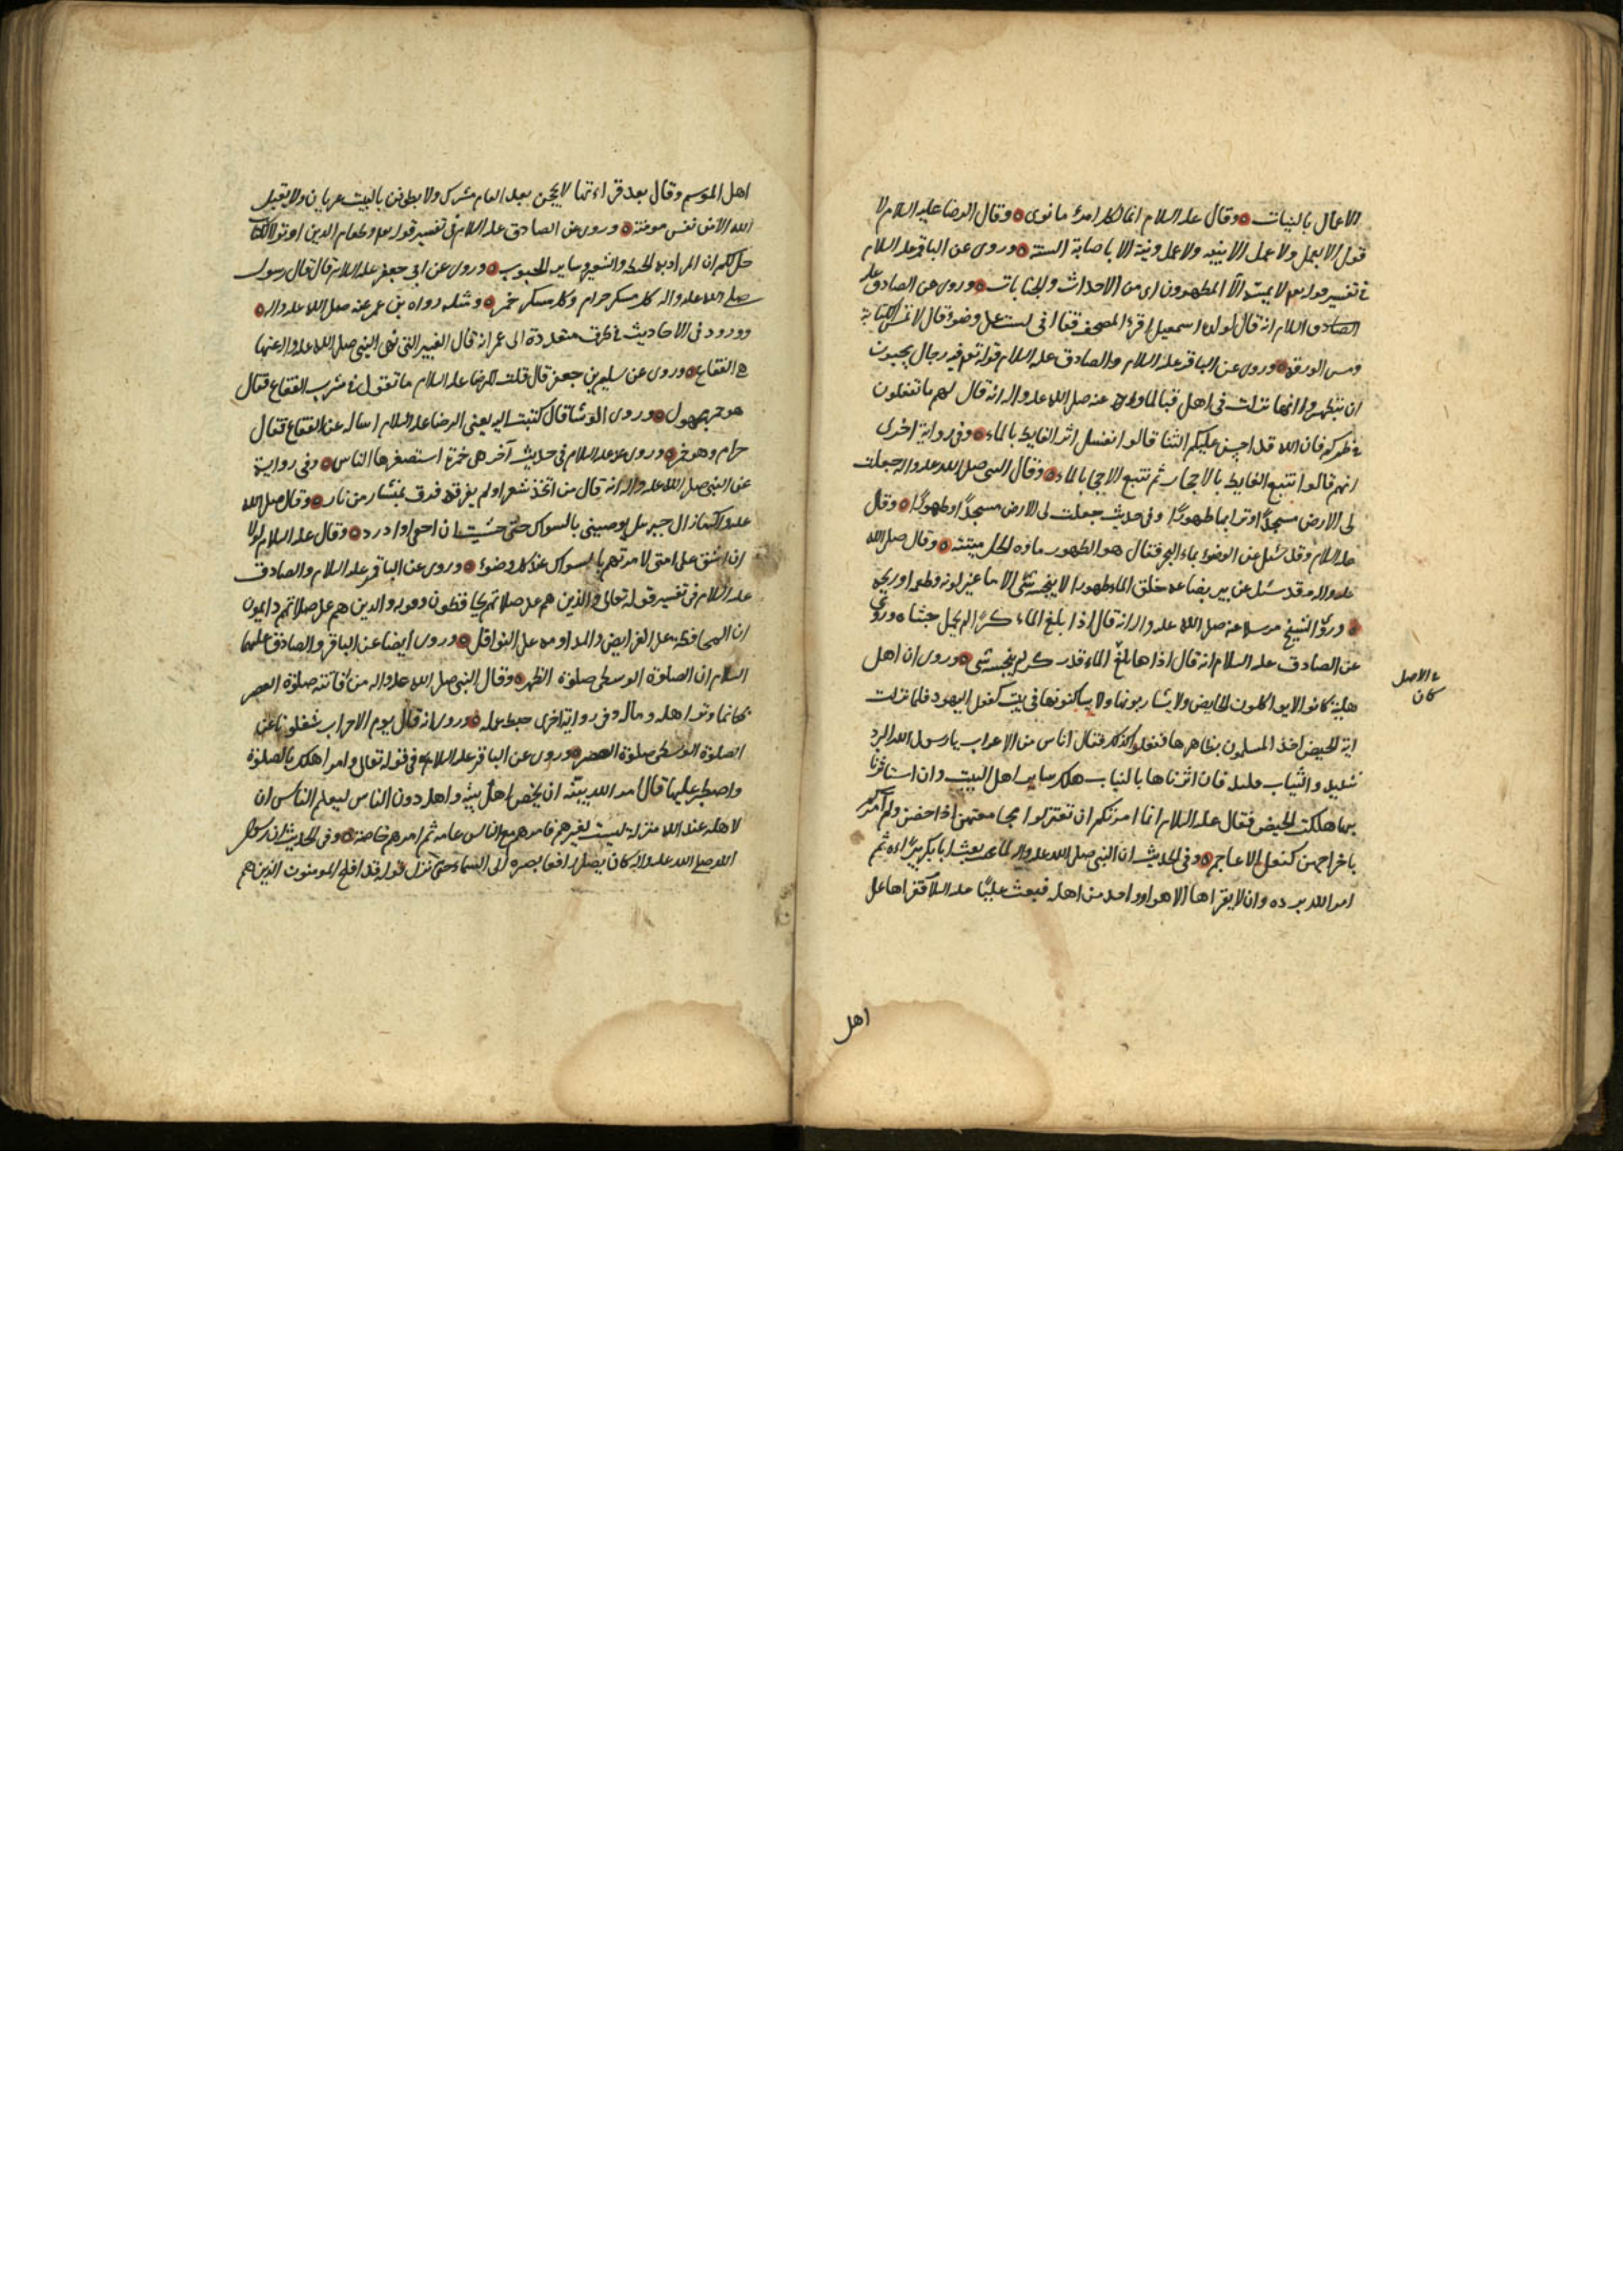 الاعمال بالنيات وقال عليه السلام انما لكل امرئ ما نوى وقال الرضا عليه السلام لا
قول الا بعمل ولا عمل الا بنية ولا عمل ونية الا باصابة السنة وروى عن الباقر عليه السلام
في تفسير قوله تعالى لا يمسه الا المطهرون اى من الاحداث والجنابات وروى عن الصادق عليه
السلام انه قال لولده اسمعيل اقرء المصحف فقال انى لست على وضوء قال لا تمس الكتابة
ومس الورق وروى عن الباقر عليه السلام والصادق عليه السلام قوله تعالى فيه رجال يحبون
ان يتطهروا انها نزلت فى اهل قبا لما روى عنه صلى الله عليه واله انه قال لهم ما تفعلون
في طهركم فان الله قد احسن عليكم الثنا قالوا نغسل اثر الغايط بالماء وفى رواية اخرى
انهم قالوا نتبع الغايط بالاحجار ثم نتبع الاحجار بالماء وقال النبى صلى الله عليه واله جعلت
لى الارض مسجدًا وترابها طهورًا وفى حديث جعلت لى الارض مسجدًا وطهورًا وقال
عليه السلام وقد سئل عن الوضوء بماء البحر فقال هو الطهور ماؤه الحل ميتته وقال صلى الله
عليه واله وقد سئل عن بير بضاعه خلق الماء طهورا لا ينجسه شئ الا ما غير لونه وطعمه او ريحه
وروى الشيخ مرسلا عنه صلى الله عليه واله انه قال اذا بلغ الماء كرًا لم يحمل خبثا وروى
عن الصادق عليه السلام انه قال اذا بلغ الماء قدر كر لم ينجسه شى وروى ان اهل
الجاهلية كانوا لا يواكلون الحايض ولا يشاربونها ولا يساكنونها فى بيت كفعل اليهود فلما نزلت
اية الحيض اخذ المسلمون بظاهرها ففعلوا كذلك فقال اناس من الاعراب يا رسول الله البرد
شديد والثياب قليلة فان اثرناها بالثياب هلك ساير اهل البيت وان استاثرنا
بها هلكت الحيض فقال عليه السلام انما امرتكم ان تعتزلوا مجامعتهن اذا حضن ولم آمركم
باخراجهن كفعل الاعاجم وفى الحديث ان النبى صلى الله عليه واله بعث ابا بكر ببراءة ثم
امر الله برده وان لا يقراها الا هو او واحد من اهله فبعث عليًا عليه السلام فقراها على
في الاصل
كان
اهل
اهل الموسم وقال بعد قراءتها لا يحجن بعد العام مشرك ولا يطوفن بالبيت عريان ولا يقبل
الله الا من نفس مومنة وروى عن الصادق عليه السلام فى تفسير قوله تعالى وطعام الذين اوتوا الكتاب
حل لكم ان المراد به الحنطة والشعير وساير الحبوب وروى عن ابى جعفر عليه السلام قال قال رسول
صلى الله عليه واله كل مسكر حرام وكل مسكر خمر ومثله رواه بن عمر عنه صلى الله عليه واله
وورد فى الاحاديث في طرق متعددة الى عمر انه قال الغبيرا التى نهى النبى صلى الله عليه واله عنها
هى الفقاع وروى عن سليم بن جعفر قال قلت للرضا عليه السلام ما تقول في شرب الفقاع فقال
هو خمر مجهول وروى الوشا قال كتبت اليه يعنى الرضا عليه السلام اساله عن الفقاع فقال
حرام وهو خمر وروى عنه عليه السلام فى حديث آخر هى خمرة استصغرها الناس وفى رواية
عن النبى صلى الله عليه واله انه قال من اتخذ شعرا ولم يفرقه فرق بمنشار من نار وقال صلى الله
عليه واله ما زال جبرئيل يوصينى بالسواك حتى خشيت ان احفى او ادرد وقال عليه السلام لولا
ان اشق على امتى لامرتهم بالسواك عند كل وضوء وروى عن الباقر عليه السلام والصادق
عليه السلام فى تفسير قوله تعالى والذين هم على صلاتهم يحافظون وقوله والذين هم على صلاتهم دايمون
ان المحافظة على الفرايض والمداومه على النوافل وروى ايضا عن الباقر والصادق عليهما
السلام ان الصلوة الوسطى صلوة الظهر وقال النبى صلى الله عليه واله من فاتته صلوة العصر
فكانما وتر اهله وماله وفى رواية اخرى حبط عمله وروى انه قال يوم الاحزاب شغلونا عن
الصلوة الوسطى صلوة العصر وروى عن الباقر عليه السلام فى قوله تعالى وامر اهلك بالصلوة
واصطبر عليها قال امر الله نبيه ان يخص اهل بيته واهله دون الناس ليعلم الناس ان
لاهله عند الله منزلة ليست لغيرهم فامرهم مع الناس عامه ثم امرهم خاصة وفى الحديث ان رسول
الله صلى الله عليه واله كان يصلى رافعا بصره الى السماء حتى نزل قوله قد افلح المومنون الذين هم